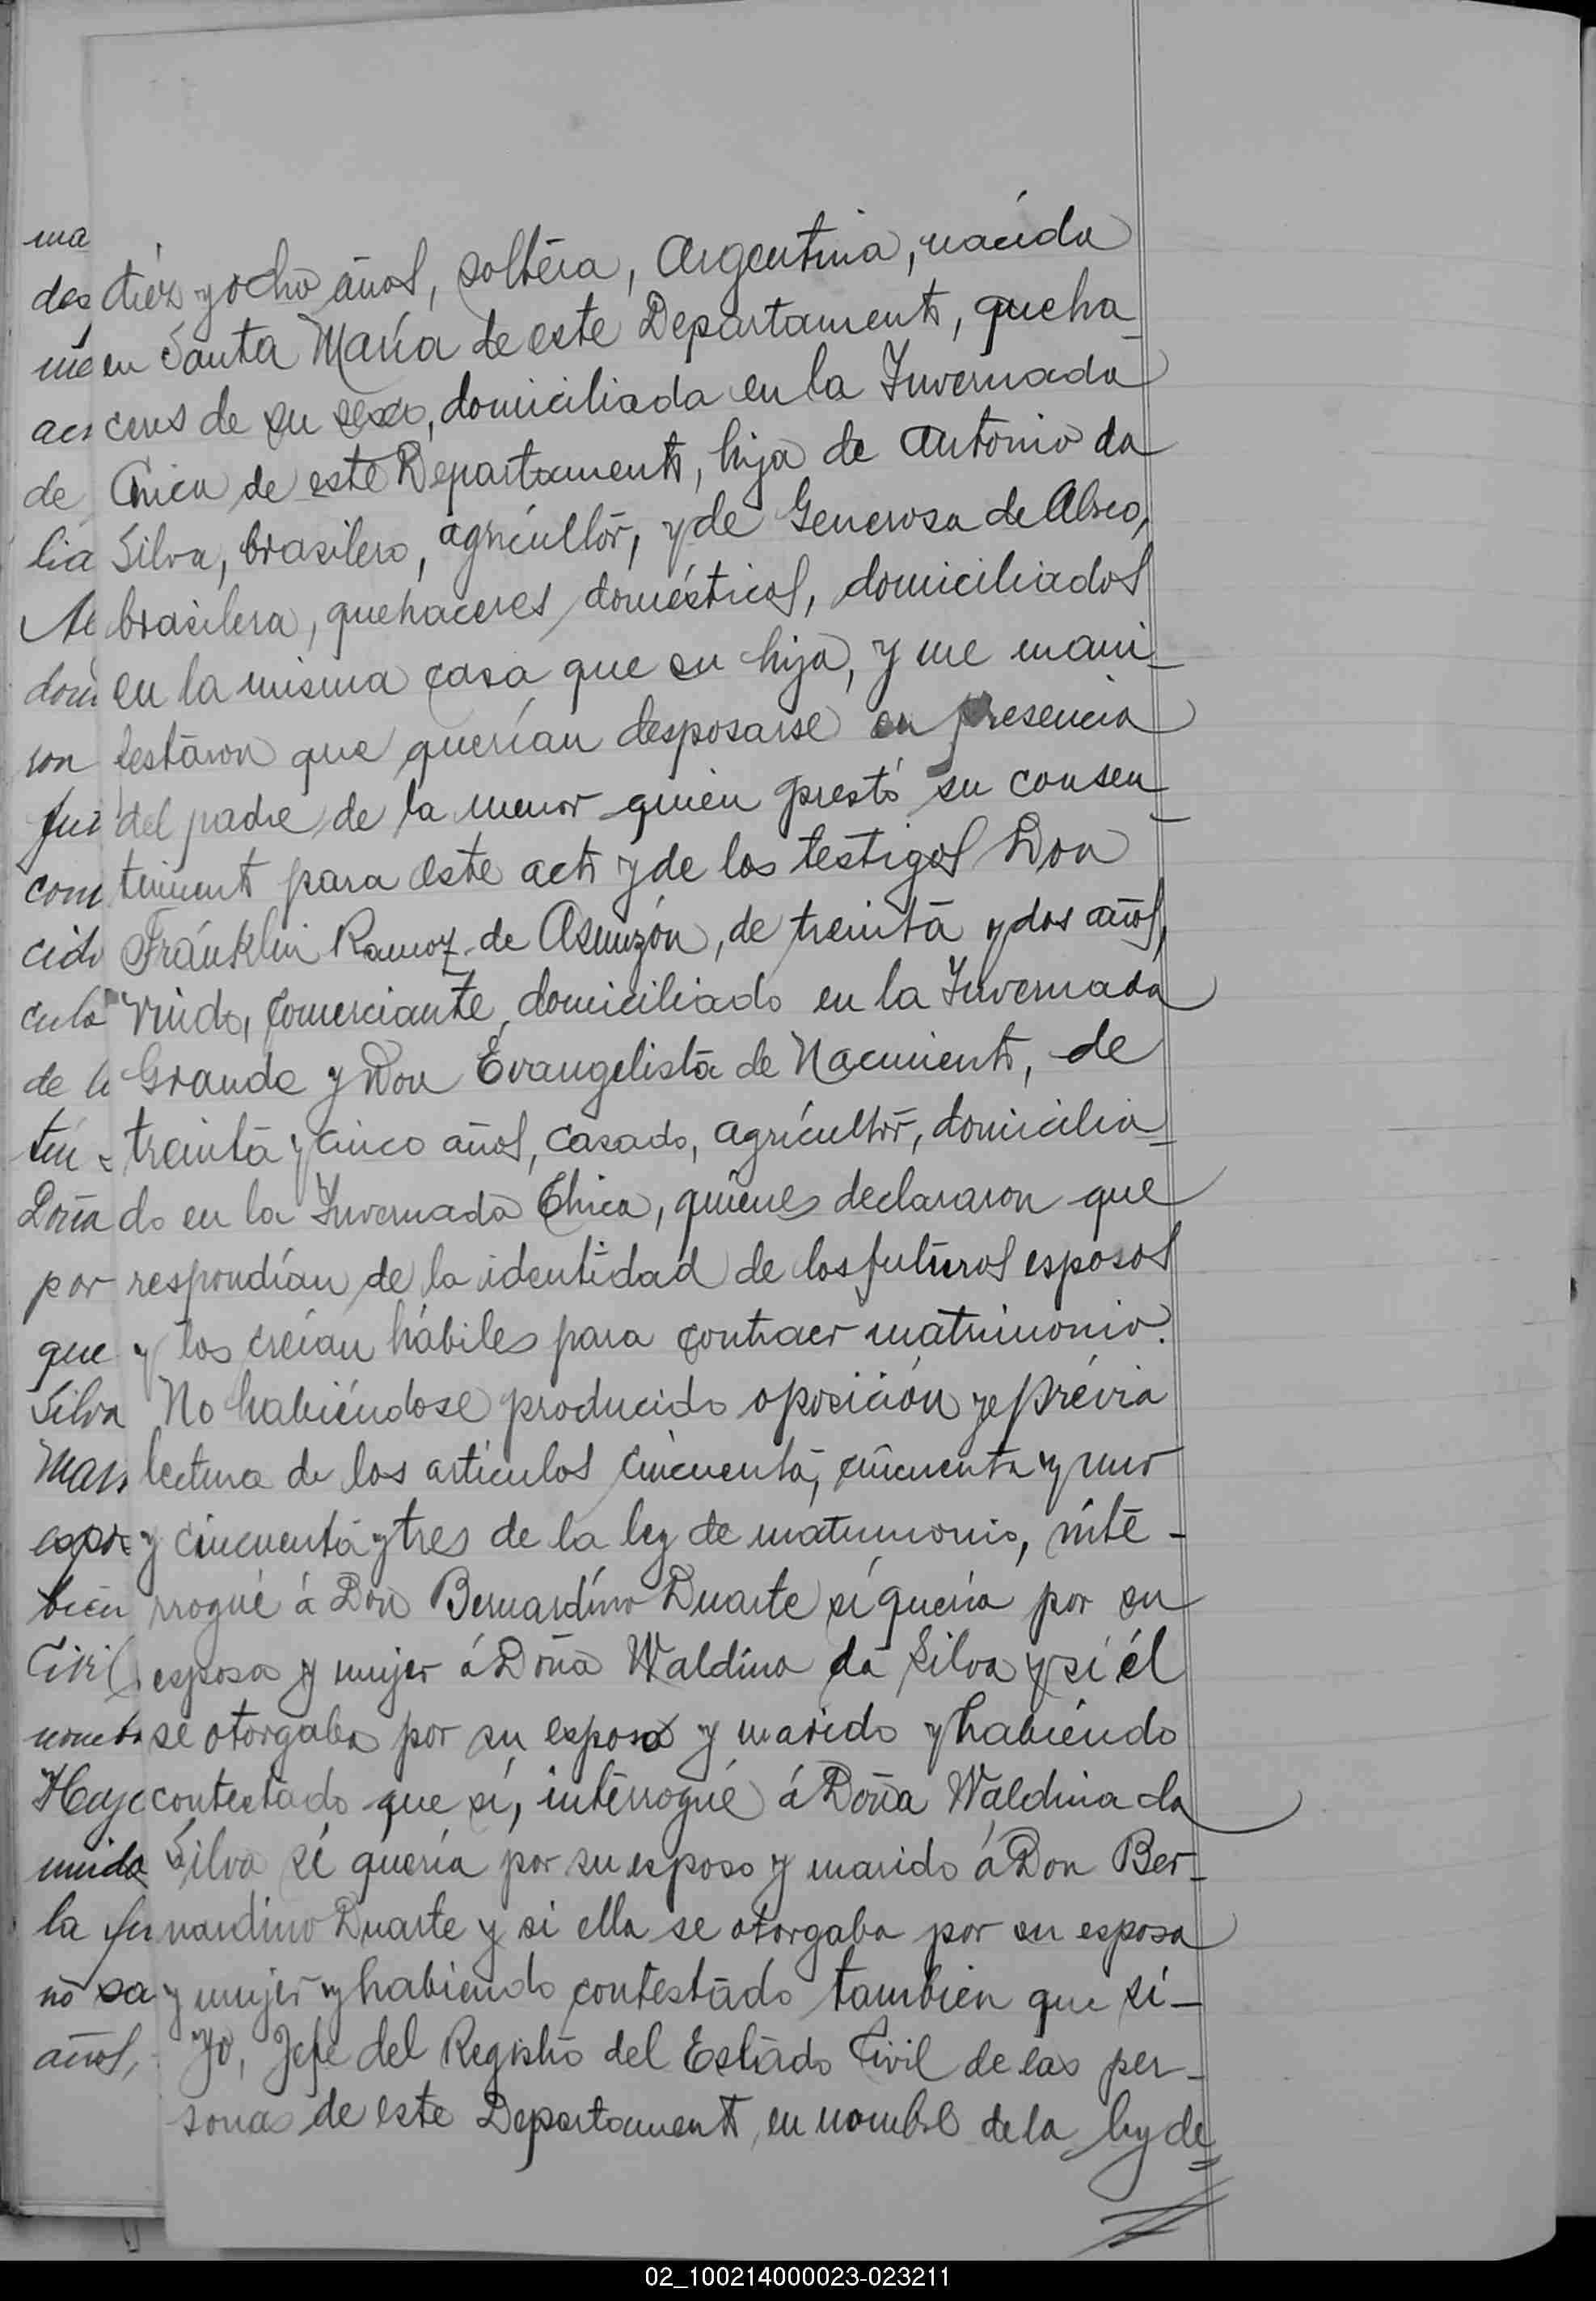 diez y ocho años, soltera, Argentina, nacida
en Santa María de este Departamento, queha-
ceres de su sexo, domiciliada en la Invernada
Chica de este Departamento, hija de Antonio da
Silva, brasilero, agricultor, y de Generosa de Abreo,
brasilera, quehaceres domésticos, domiciliados
en la misma casa que su hija, y me mani-
festaron que querían desposarse en presencia
del padre de la menor quien prestó su consen-
timiento para este acto y de los testigos Don
Fránklin Ramoz de Asunzón, de treinta y dos años,
viudo, comerciante, domiciliado en la Invernada
Grande y Don Evangelista de Nacimiento, de
treinta y cinco años, casado, agricultor, domicilia-
do en la Invernada Chica, quienes declararon que
respondían de la identidad de los futuros esposos
y los creían hábiles para contraer matrimonio.
No habiéndose producido oposición y prévia
lectura de los artículos cincuenta, cincuenta y uno
y cincuenta y tres de la ley de matrimonio, inte-
rrogué á Don Bernardino Duarte si quería por su
esposa y mujer á Doña Waldina da Silva y si él
se otorgaba por su esposo y marido y habiendo
contestado que sí, interrogué á Doña Waldina da
Silva si quería por su esposo y marido á Don Ber-
nardino Duarte y si ella se otorgaba por su esposa
y mujer y habiendo contestado tambien que sí-
Yo, Jefe del Registro del Estado Civil de las per-
sonas de este Departamento, en nombre de la ley de=
ma
des
de
lia
son
por
que
Silva
Civil
unida
no sa
años,
02_100214000023-023211